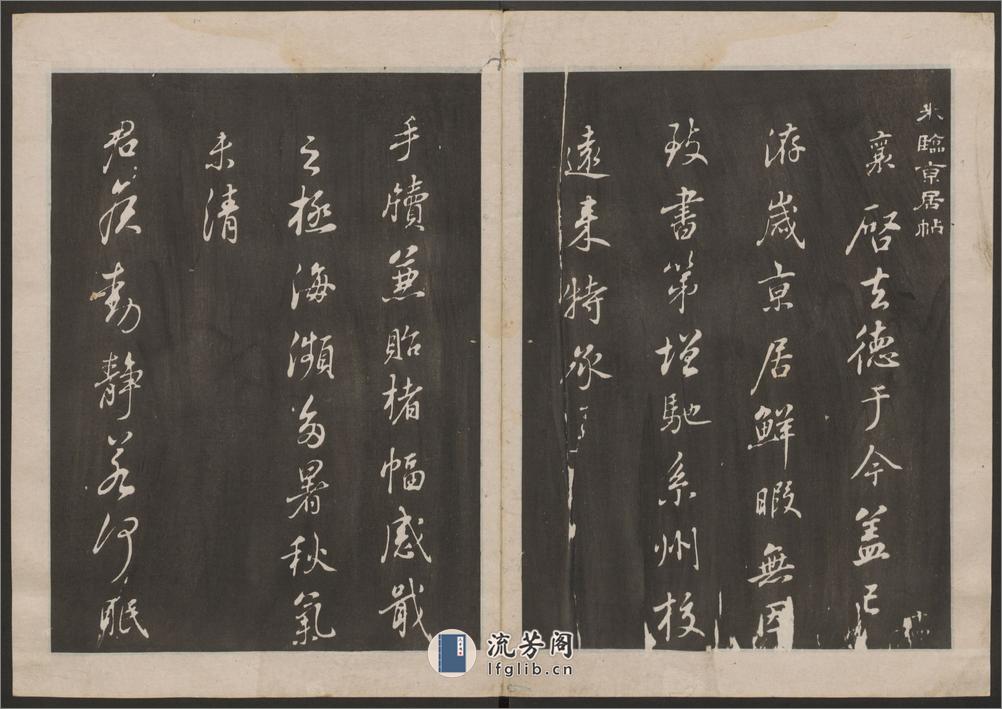 米臨京居帖
襄啓去德于今蓋已
十一
游歲京居鮮暇無因
致書第增馳系州校
遠來特承
手牘兼貽楮幅感戢
之極海瀕多暑秋氣
未清
君侯動靜若何眠
流芳阁
lfglib.cn